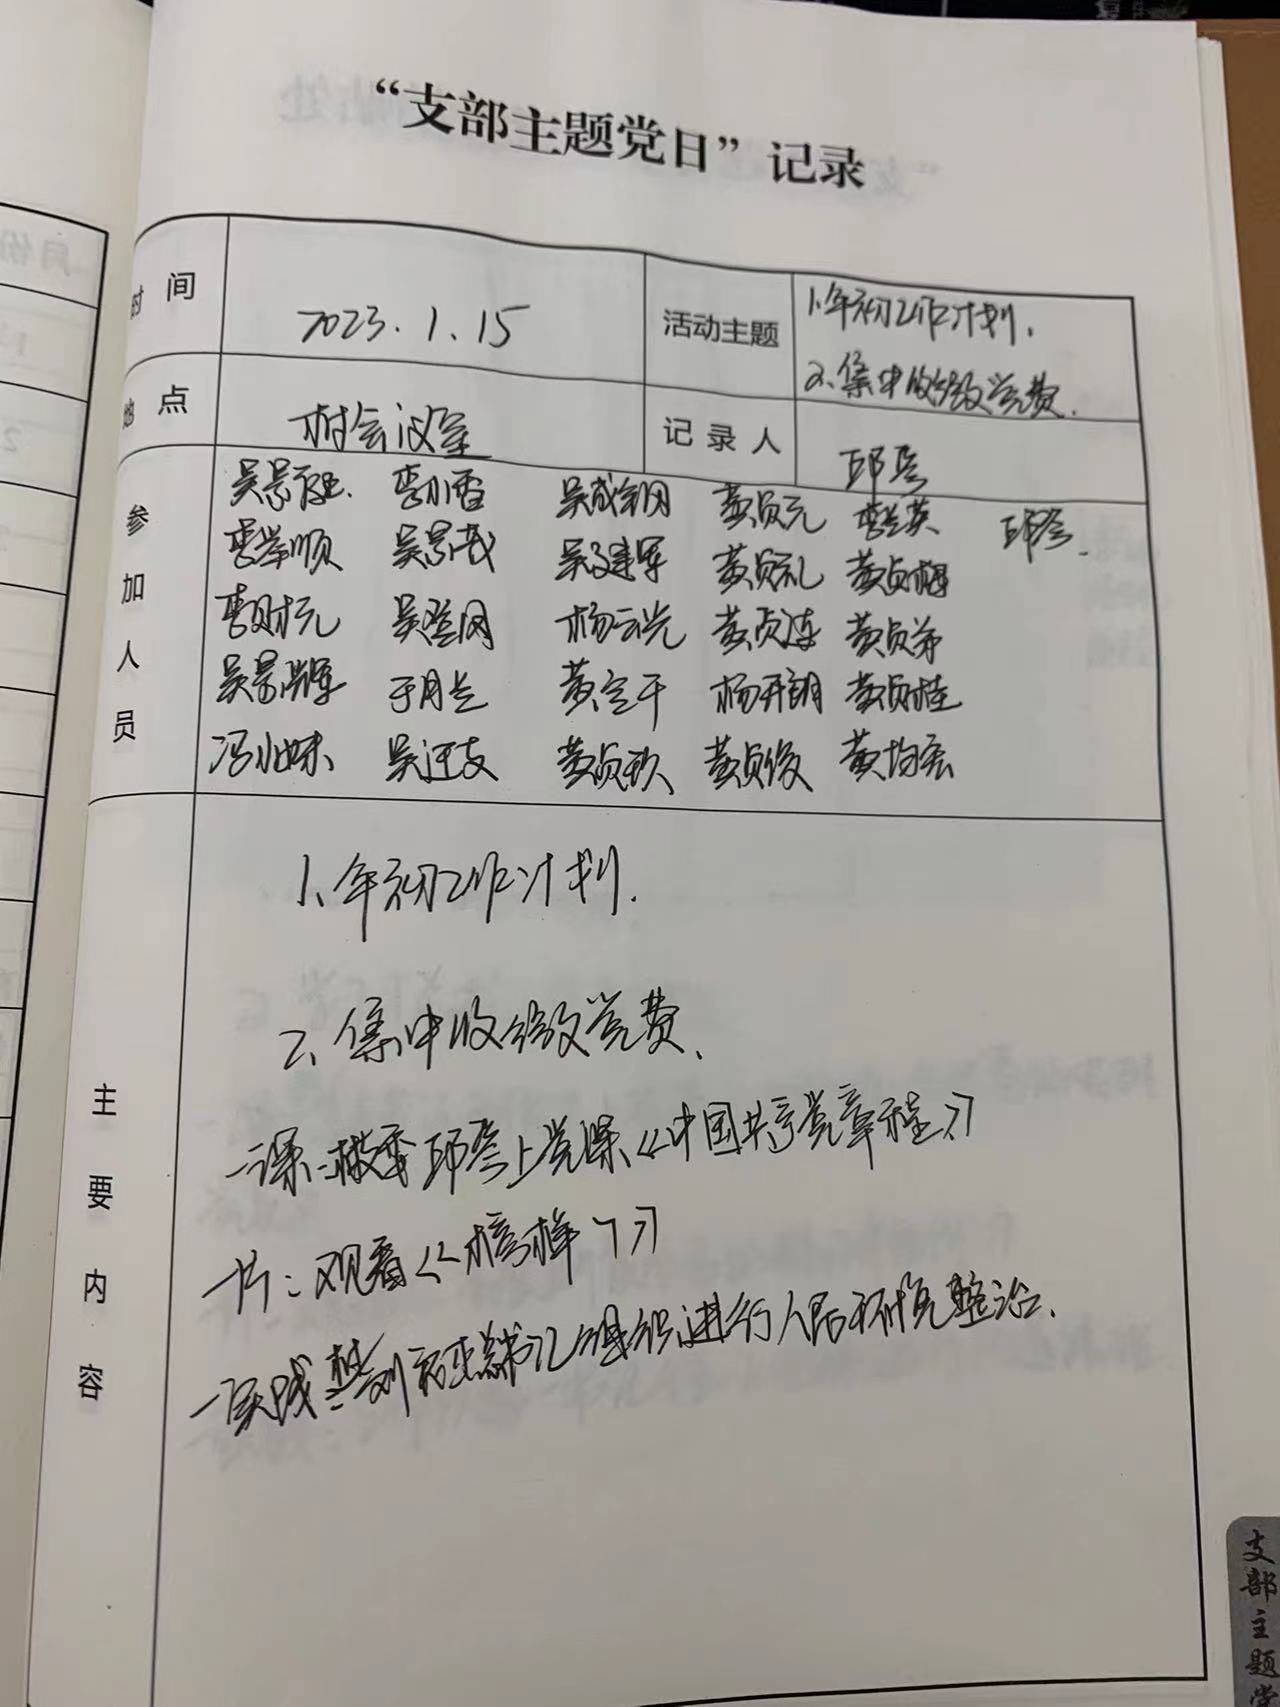 “支部主题党日”记录
时间 2023.1.15 活动主题 1.年初工作计划.
2、集中收缴党费.
地点 村会议室 记录人 邱彦
参加人员
李小香 吴成钢 黄贞元 李兰英 邱彦.
李学顺 吴景茂 吴建军 黄贞礼 黄贞梅
李财元 吴登网 杨云光 黄贞连 黄贞弟
吴景辉 于月兰 黄定干 杨开朗 黄贞桂
冯小妹 黄贞欣 黄贞俊 黄均宏
主要内容
1、年初工作计划.
2、集中收缴党费、
一课: 邱彦上党课《中国共产党章程》
一片：观看《榜样7》
一实践: 书记组织进行人居环境整治、
月份
支部主题党